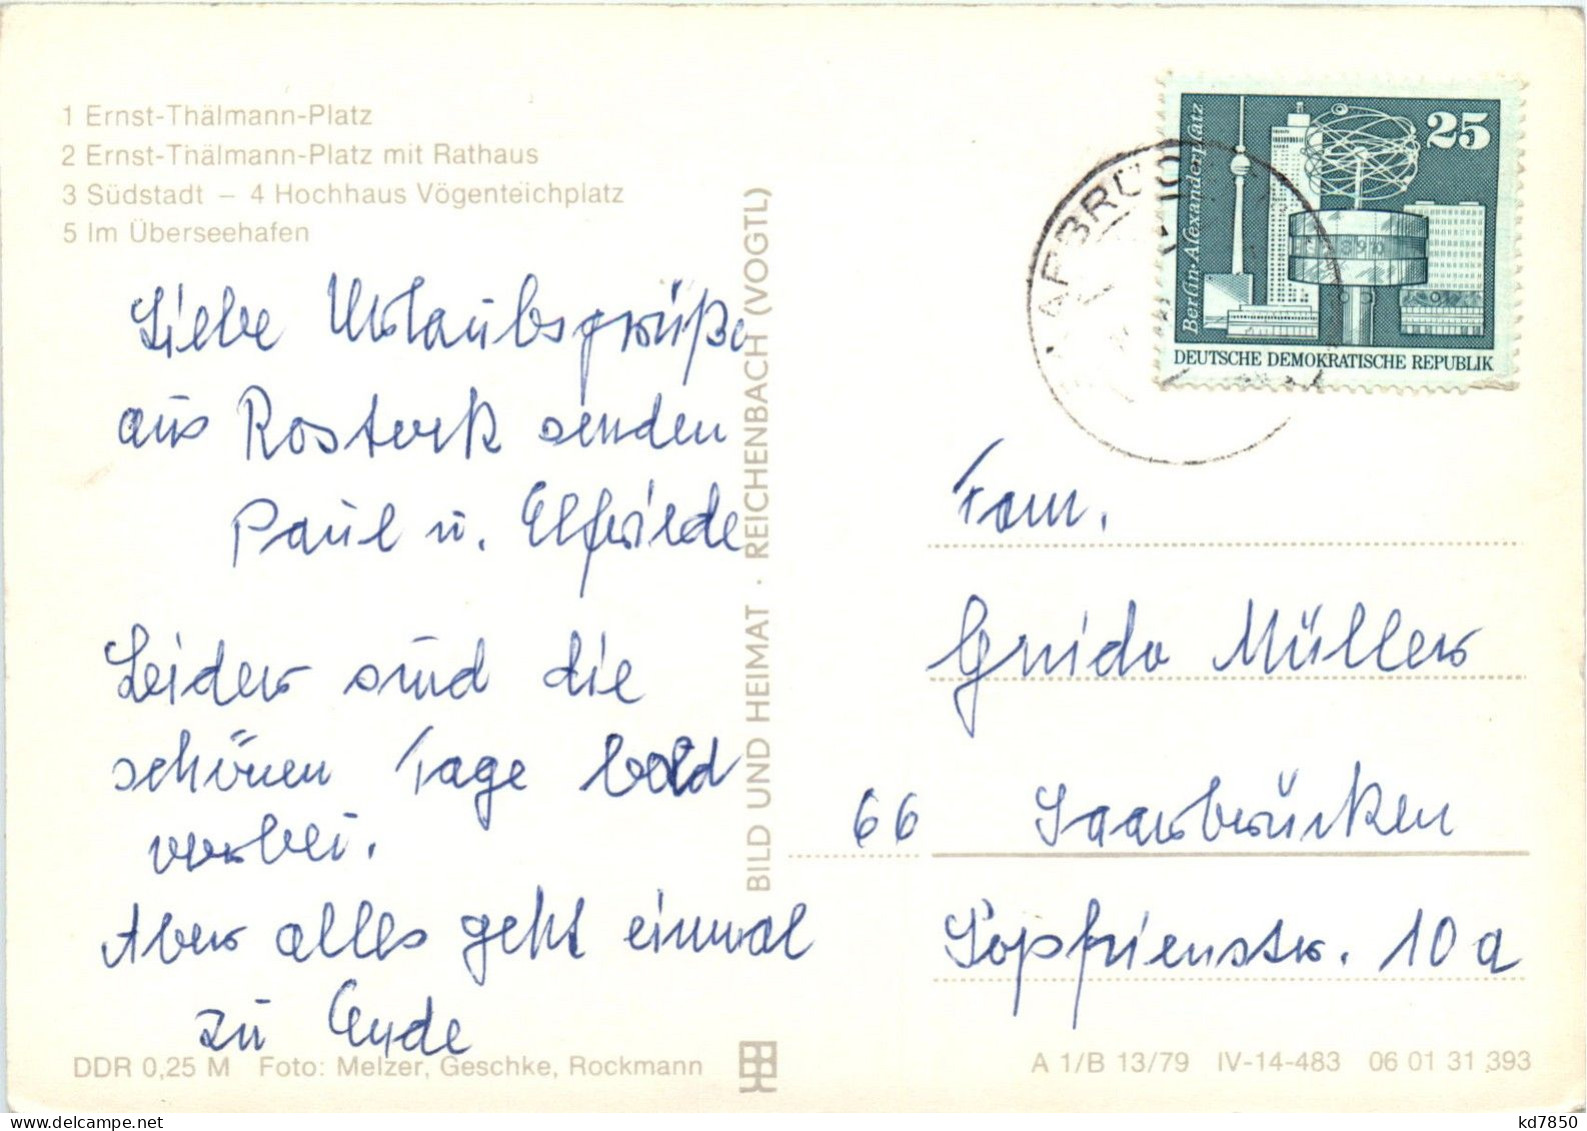 1 Ernst-Thälmann-Platz
2 Ernst-Thälmann-Platz mit Rathaus
3 Südstadt – 4 Hochhaus Vögenteichplatz
5 Im Überseehafen
Liebe Urlaubsgrüße
aus Rostock senden
Paul u. Elfriede
Leider sind die
schönen Tage bald
vorbei.
Aber alles geht einmal
zu Ende
DDR 0,25 M Foto: Melzer, Geschke, Rockmann
BILD UND HEIMAT · REICHENBACH (VOGTL)
25
Berlin·Alexanderplatz
DEUTSCHE DEMOKRATISCHE REPUBLIK
Fam.
Guido Müller
66 Saarbrücken
Sophienstr. 10a
A 1/B 13/79 IV-14-483 06 01 31 393
kd7850